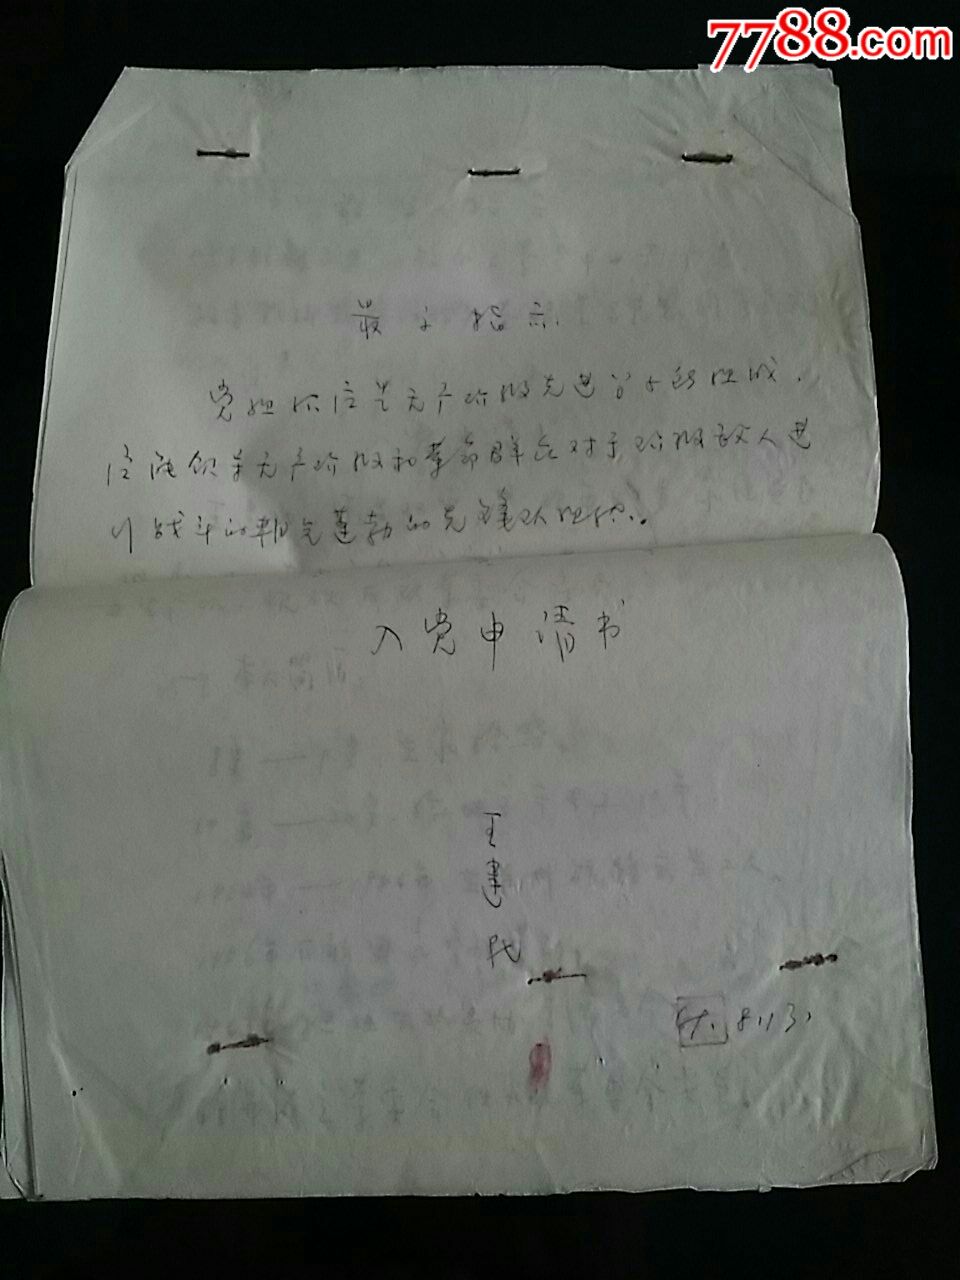 7788.com
最高指示
党组织应是无产阶级先进分子所组成，
应能领导无产阶级和革命群众对于阶级敌人进
行战斗的朝气蓬勃的先锋队组织。
入党申请书
王建民
8.13.